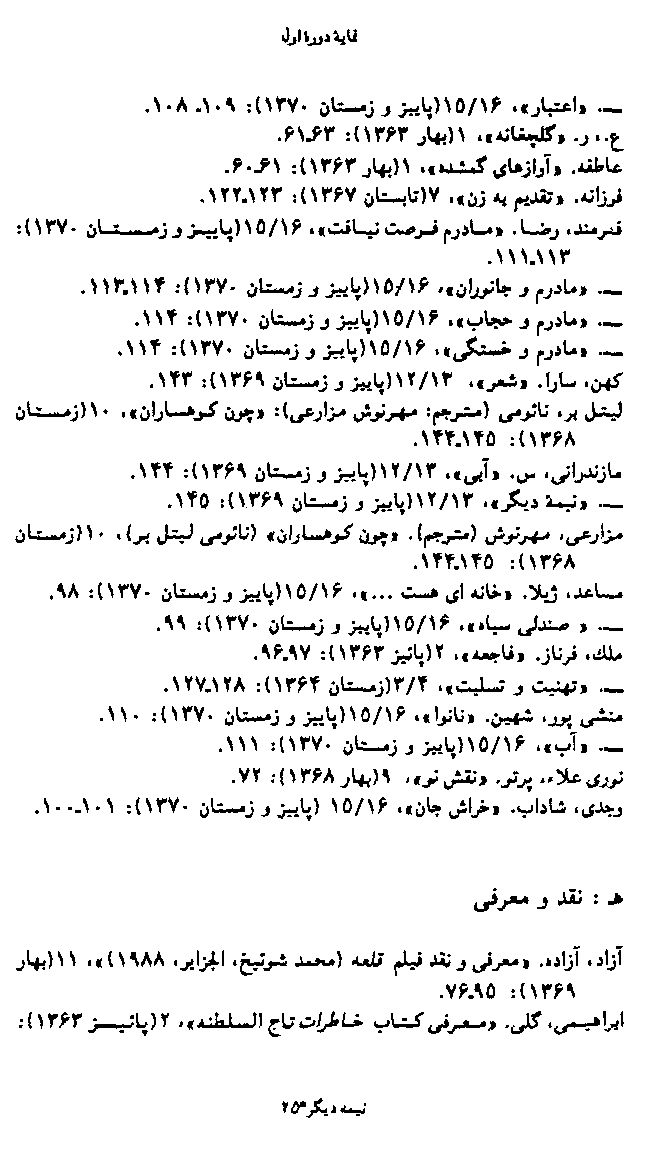 نمایهٔ دورهٔ اول
ـــ. «اعتبار»، ۱۵/۱۶(پاییز و زمستان ۱۳۷۰): ۱۰۹ـ۱۰۸.
ع.، ر. «گلچغانه»، ۱(بهار ۱۳۶۳): ۶۳ـ۶۱.
عاطفه. «آوازهای گمشده»، ۱(بهار ۱۳۶۳): ۶۱ـ۶۰.
فرزانه. «تقدیم به زن»، ۷(تابستان ۱۳۶۷): ۱۲۳ـ۱۲۲.
فنرمند، رضا. «مادرم فرصت نیافت»، ۱۵/۱۶(پاییز و زمستان ۱۳۷۰):
۱۱۳ـ۱۱۱.
ـــ. «مادرم و جانوران»، ۱۵/۱۶(پاییز و زمستان ۱۳۷۰): ۱۱۴ـ۱۱۳.
ـــ. «مادرم و حجاب»، ۱۵/۱۶(پاییز و زمستان ۱۳۷۰): ۱۱۴.
ـــ. «مادرم و خستگی»، ۱۵/۱۶(پاییز و زمستان ۱۳۷۰): ۱۱۴.
کهن، سارا. «شعر»، ۱۲/۱۳(پاییز و زمستان ۱۳۶۹): ۱۴۳.
لیتل بر، نائومی (مترجم: مهرنوش مزارعی): «چون کوهساران»، ۱۰(زمستان
۱۳۶۸): ۱۴۵ـ۱۴۴.
مازندرانی، س. «آبی»، ۱۲/۱۳(پاییز و زمستان ۱۳۶۹): ۱۴۴.
ـــ. «نیمهٔ دیگر»، ۱۲/۱۳(پاییز و زمستان ۱۳۶۹): ۱۴۵.
مزارعی، مهرنوش (مترجم). «چون کوهساران» (نائومی لیتل بر)، ۱۰(زمستان
۱۳۶۸): ۱۴۵ـ۱۴۴.
مساعد، ژیلا. «خانه ای هست ...»، ۱۵/۱۶(پاییز و زمستان ۱۳۷۰): ۹۸.
ـــ. « صندلی سیاه»، ۱۵/۱۶(پاییز و زمستان ۱۳۷۰): ۹۹.
ملك، فرناز. «فاجعه»، ۲(پائیز ۱۳۶۳): ۹۷ـ۹۶.
ـــ. «تهنیت و تسلیت»، ۳/۴(زمستان ۱۳۶۴): ۱۲۸ـ۱۲۷.
منشی پور، شهین. «نانوا»، ۱۵/۱۶(پاییز و زمستان ۱۳۷۰): ۱۱۰.
ـــ. «آب»، ۱۵/۱۶(پاییز و زمستان ۱۳۷۰): ۱۱۱.
نوری علاء، پرتو. «نقش نو»، ۹(بهار ۱۳۶۸): ۷۲.
وجدی، شاداب. «خراش جان»، ۱۵/۱۶ (پاییز و زمستان ۱۳۷۰): ۱۰۱ـ۱۰۰.
هـ : نقد و معرفی
آزاد، آزاده. «معرفی و نقد فیلم قلعه (محمد شوئیخ، الجزایر، ۱۹۸۸)»، ۱۱(بهار
۱۳۶۹): ۹۵ـ۷۶.
ابراهیمی، گلی. «معرفی کتاب خاطرات تاج السلطنه»، ۲(پائیز ۱۳۶۳):
نیمه دیگر* ۲۵